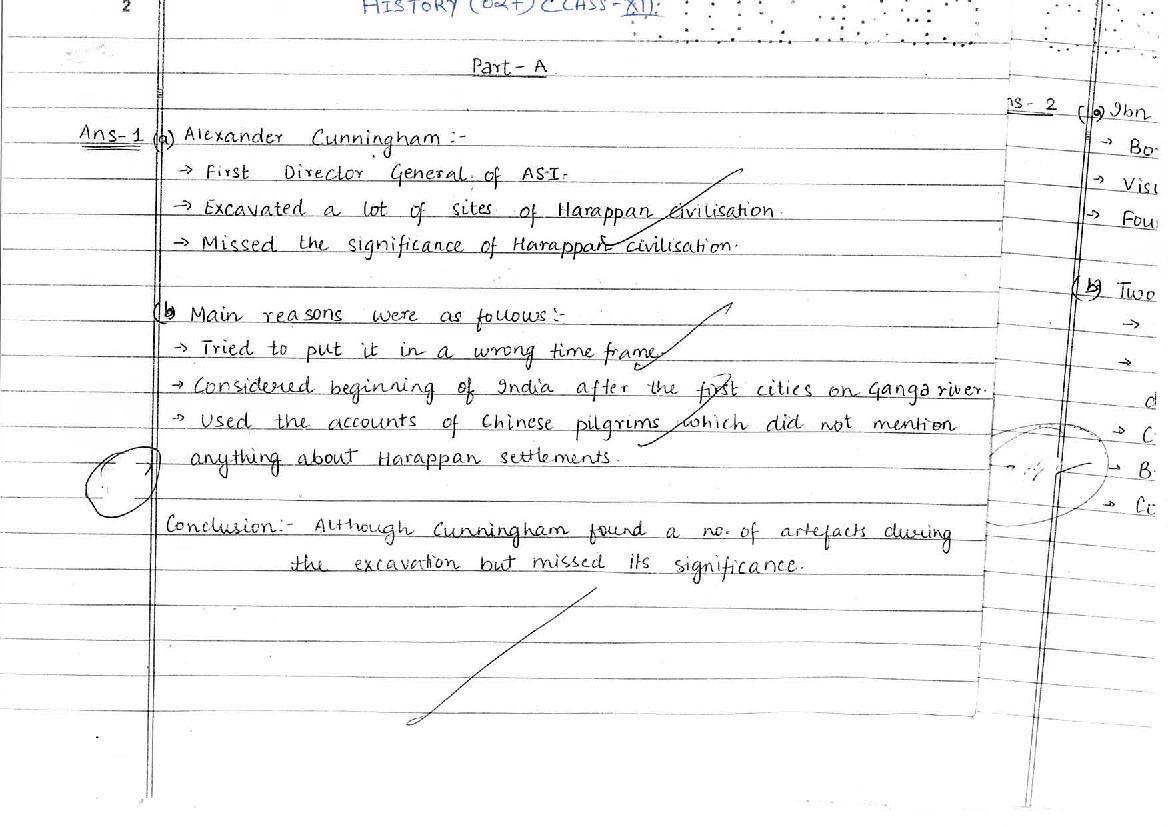 2
HISTORY (027) CLASS-XII.
Part-A
Ans-1 (a) Alexander Cunningham :-
→ First Director General of ASI.
→ Excavated a lot of sites of Harappan civilisation.
→ Missed the significance of Harappan civilisation.
(b) Main reasons were as follows :-
→ Tried to put it in a wrong time frame.
→ Considered beginning of India after the first cities on Ganga river.
→ Used the accounts of Chinese pilgrims which did not mention
anything about Harappan settlements.
Conclusion:- Although Cunningham found a no. of artefacts during
the excavation but missed its significance.
ns-2 (a) Ibn
→ Bo
→ Visi
→ Fou
(b) Two
→
→
d
→ C
→ B
→ Co